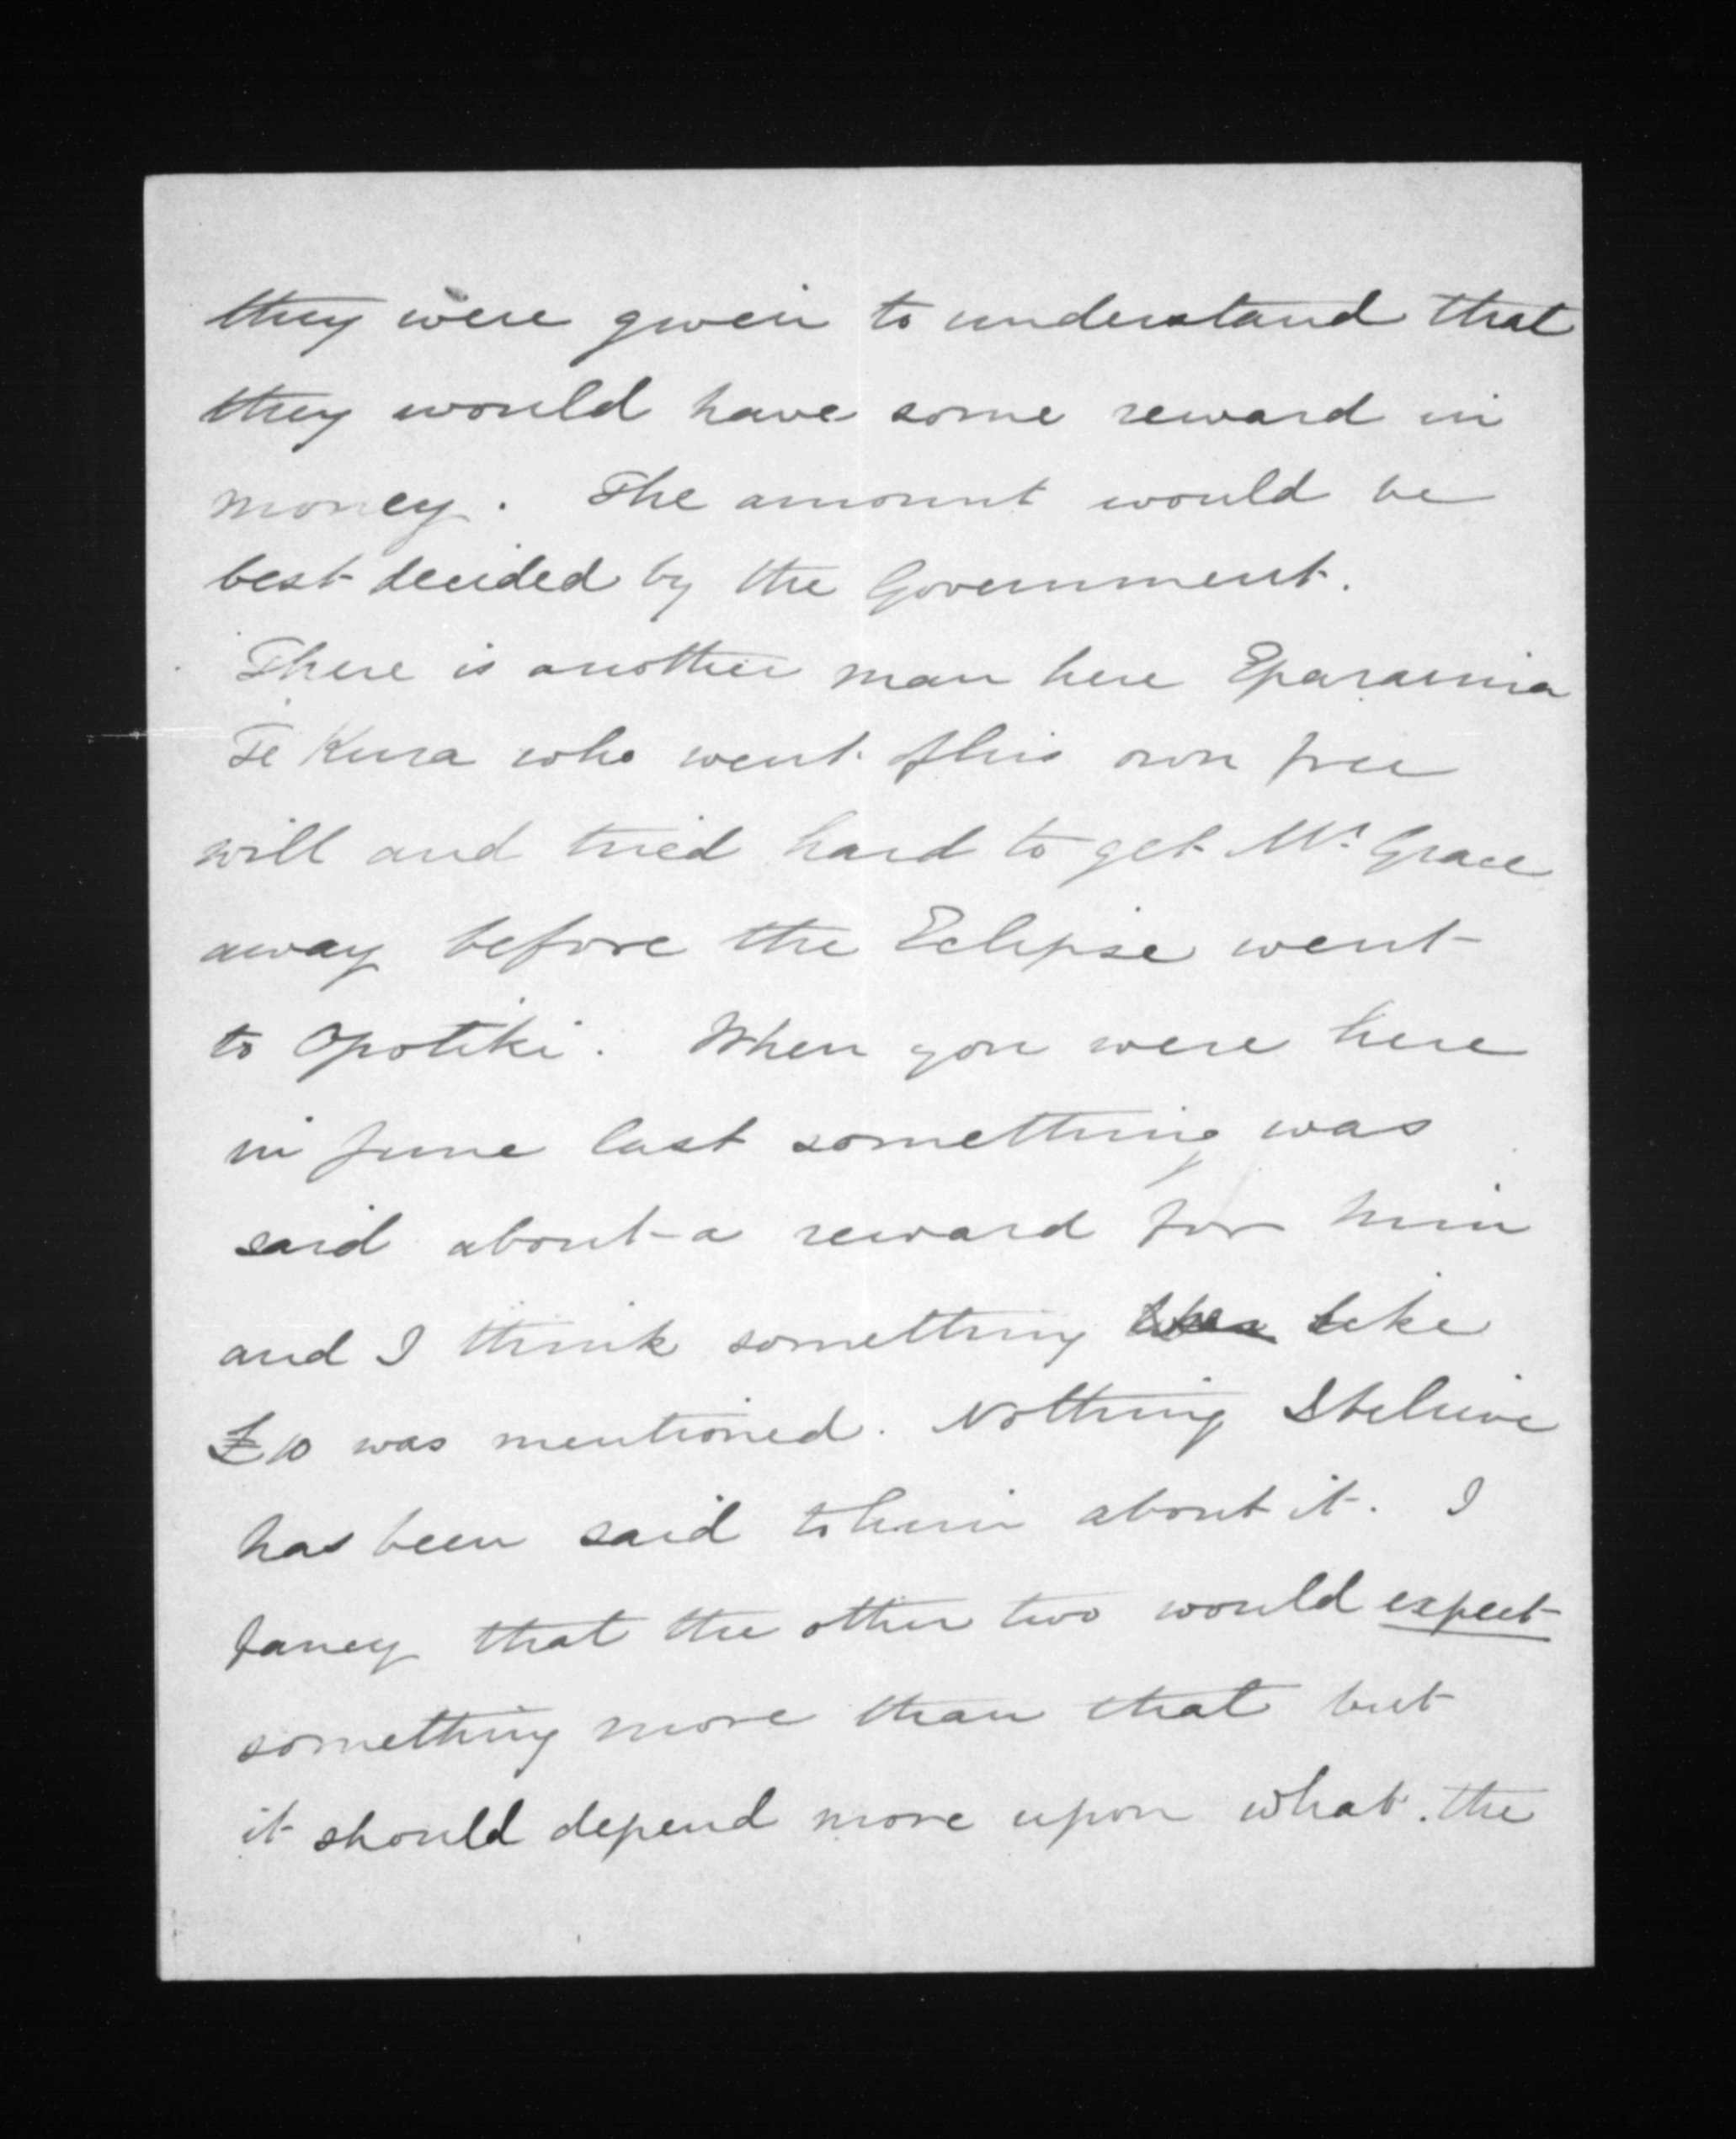 they were given to understand that
they would have some reward in
money. The amount would be
best decided by the Government.
There is another man here Eparaima
Te Kura who went of his own free
will and tried hard to get Mr Grace
away before the Eclipse went
to Opotiki. When you were here
in June last something was
said about a reward for him
and I think something like
£10 was mentioned. Nothing I believe
has been said to him about it. I
fancy that the other two would expect
something more than that but
it should depend more upon what the